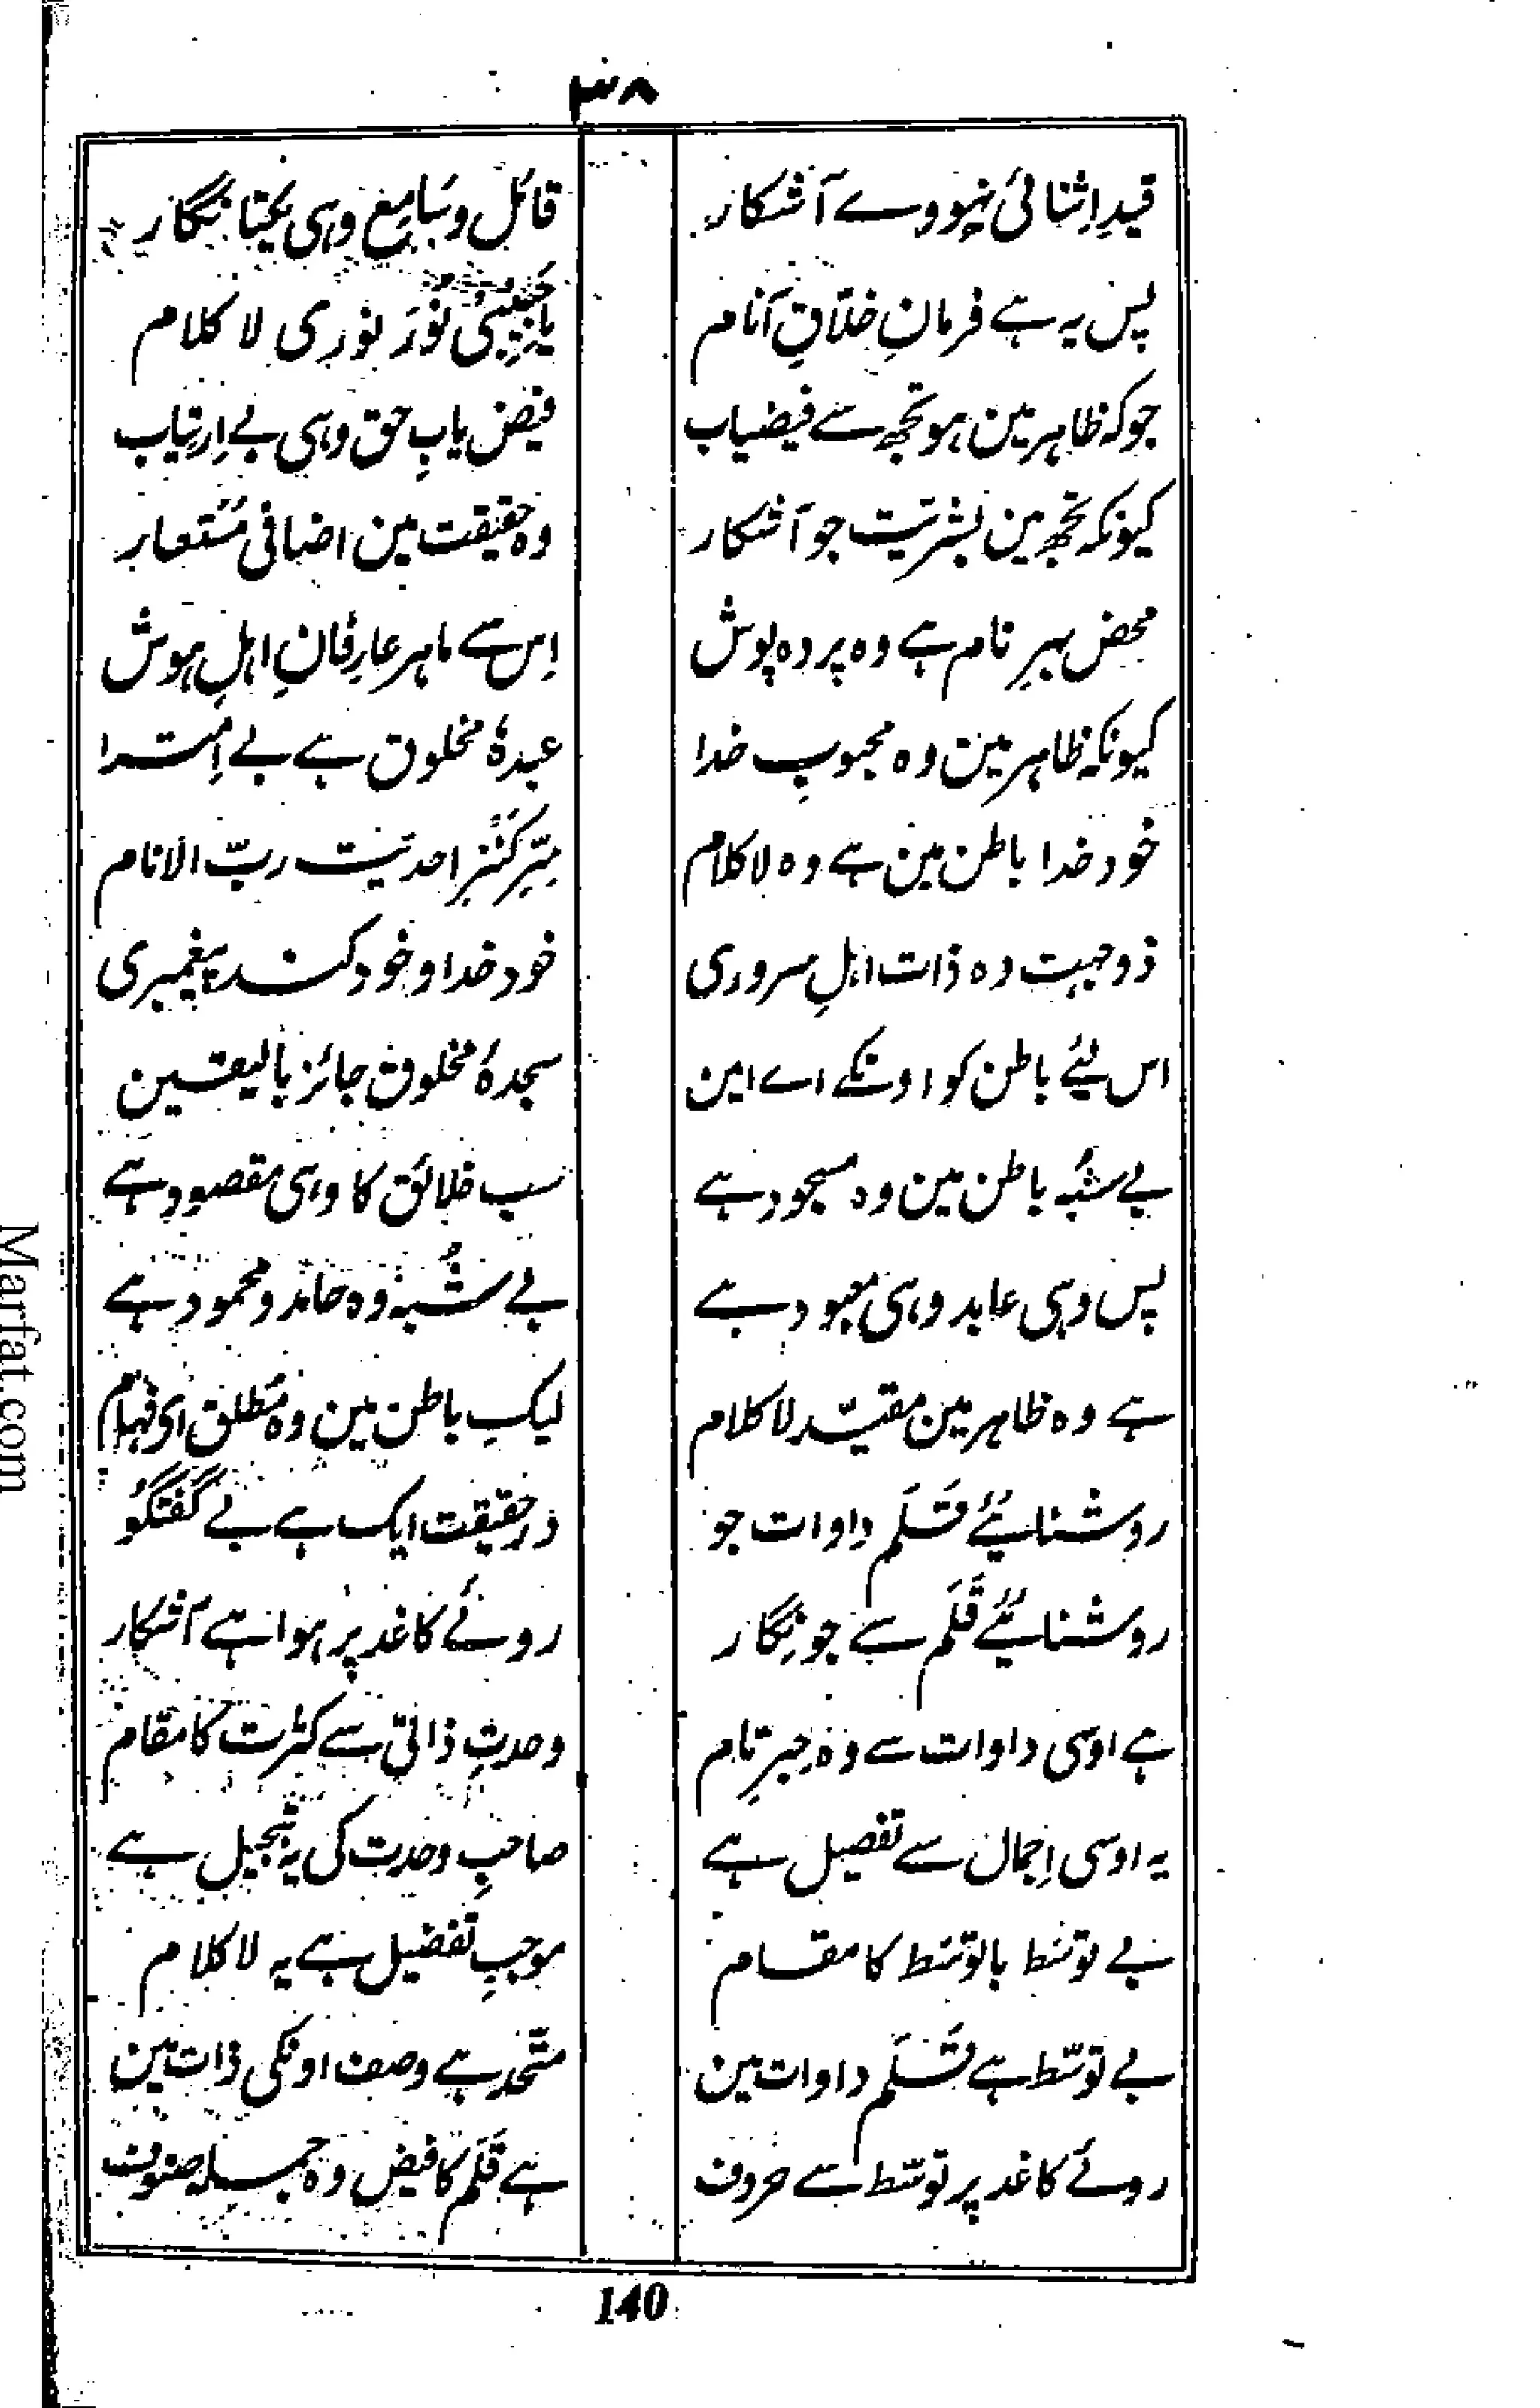 ۳۸
قیدِ اِثنائی نہووے آشکار قائل و سَامِع وہی یکتا نگار
پس یہ ہے فرمانِ خلّاقِ اَنام یَا حَبِیْبِیْ نُوْرَ نوری لا کلام
جو کہ ظاہر مین ہو تجھ سے فیضیاب فیض یابِ حق وہی بے اِرتیاب
کیونکہ تجھ مین بشریّت جو آشکار وہ حقیقت مین اضافی مُستعار
محض بہرِ نام ہے وہ پردہ پوش اِس سے ماہر عارِفانِ اہلِ ہوش
کیونکہ ظاہر مین وہ محبوبِ خدا عبدۂ مخلوق ہے بے اِمترا
خود خدا باطن مین ہے وہ لاکلام سِرِّ کَنْزِ احدیّت ربّ الانام
ذوجہت وہ ذات اہلِ سروری خود خدا و خود کند پیغمبری
اس لیٔے باطن کو اونکے اے امین سجدۂ مخلوق جائز بالیقین
بے شبُہ باطن مین وہ مسجود ہے سب خلائق کا وہی مقصود ہے
پس وہی عابد وہی معبود ہے بے شُبہ وہ حامد و محمود ہے
ہے وہ ظاہر مین مقیّد لا کلام لیکِ باطن مین وہ مُطلق ای فہام
روشنایٔے قَلَم داوات جو درحقیقت ایک ہے بے گُفتگُو
روشنایٔے قَلَم سے جو نِگار روئے کاغد پر ہوا ہے آشکار
ہے اوسی داوات سے وہ حبرِ تام وحدتِ ذاتی سے کثرت کا مقام
یہ اوسی اِجمال سے تفصیل ہے صاحبِ وحدت کی یہ تبجیل ہے
بے توسّط بالتوسّط کا مقام موجبِ تفضیل ہے یہ لا کلام
بے توسّط ہے قَلَم داوات مین متّحد ہے وصف اونکی ذات مین
روئے کاغد پر توسّط سے حروف ہے قَلَم کا فیض وہ جملہ صنوف
140
Marfat.com